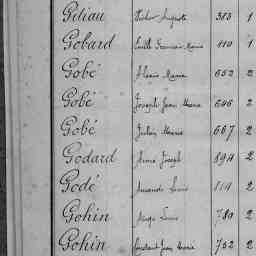 Geliau Victor Auguste 383 1
Gobard Emile Francois Marie 110 1
Gobé Alexis Marie 652 2
Gobé Joseph Jean Marie 646 2
Gobé Julien Marie 667 2
Godard Aimé Joseph 894 2
Godé Amand Louis 114 2
Gohin Ange Louis 780 2
Gohin Constant Jean Marie 752 2